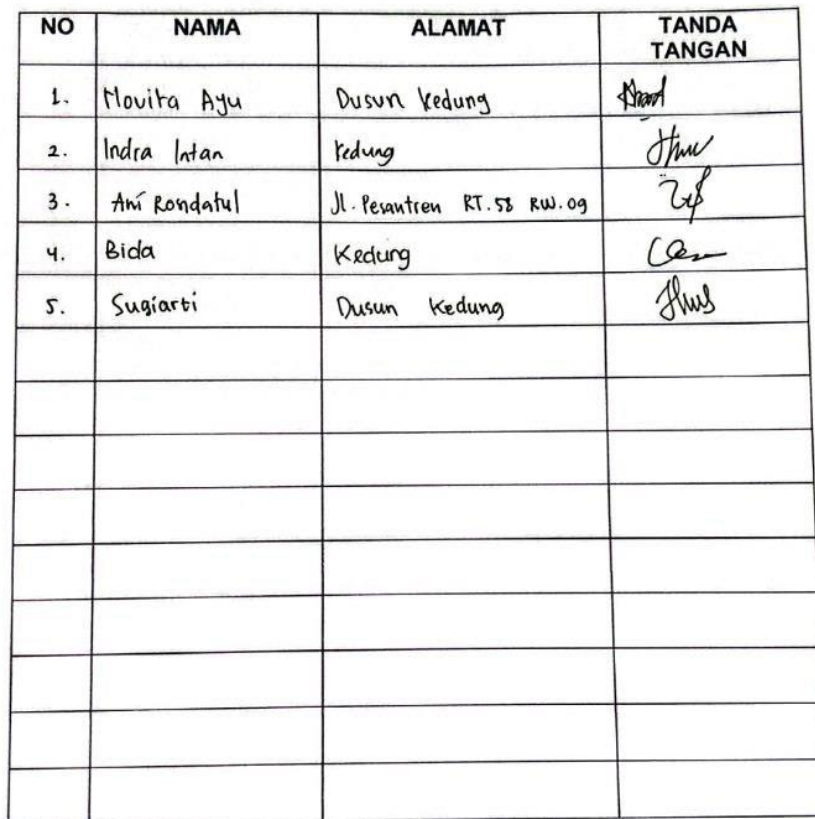 NO NAMA ALAMAT TANDA TANGAN
1. Movita Ayu Dusun Kedung
2. Indra Intan Kedung
3. Ani Rondatul Jl. Pesantren RT. 58 RW. 09
4. Bida Kedung
5. Sugiarti Dusun Kedung